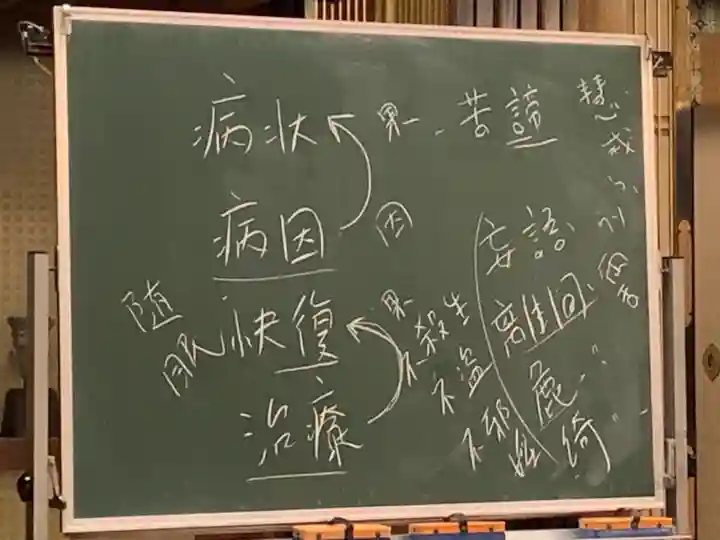 病状
果 苦諦
病因
因
随
眠
快復
果
治療
不殺生
不盗
不邪婬
妄語
离生回
麁〃
綺〃